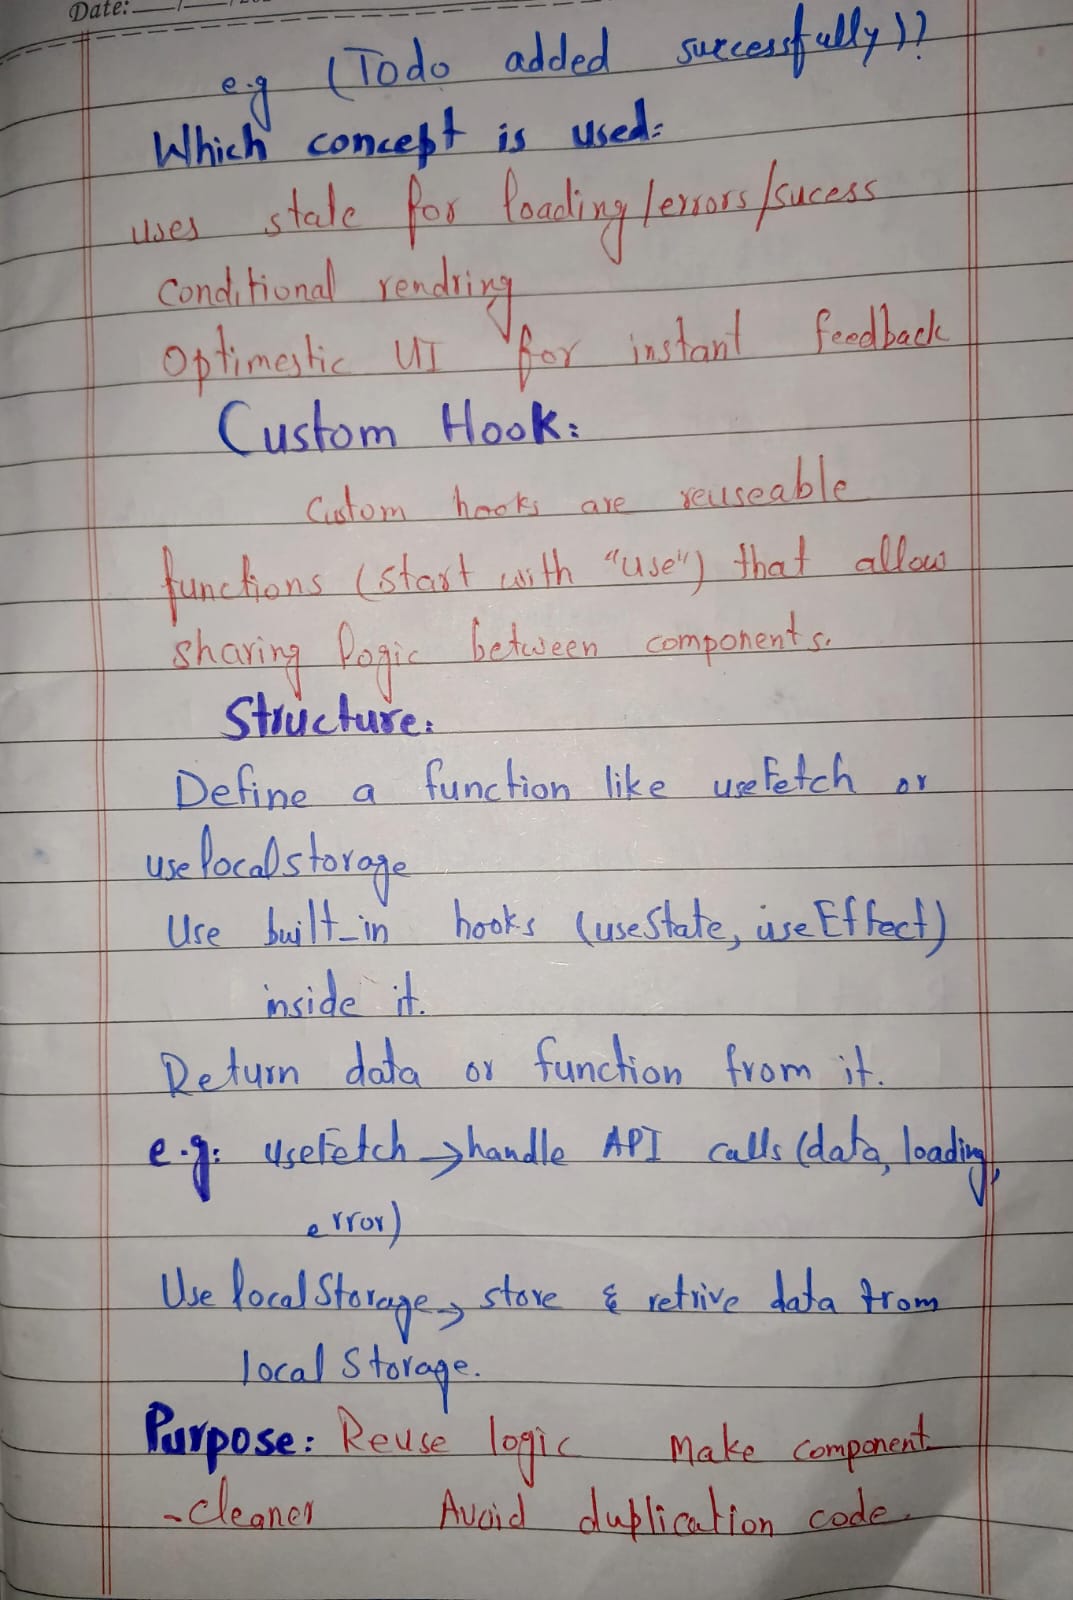 Date:
e.g (Todo added successfully)?
Which concept is used:
uses state for loading/errors/sucess
conditional rendring
Optimestic UI for instant feedback
Custom Hook:
Custom hooks are reuseable
functions (start with "use") that allow
sharing logic between components.
Structure:
Define a function like useFetch or
uselocalstorage
Use built-in hooks (useState, useEffect)
inside it.
Return data or function from it.
e.g: useFetch → handle API calls (data, loading,
error)
Use localStorage → store & retrive data from
local Storage.
Purpose: Reuse logic Make component
-cleaner Avoid duplication code.